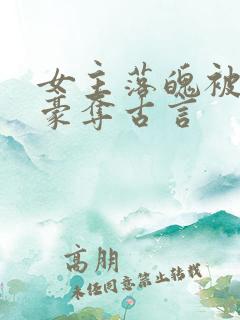 女主落魄被
豪夺古言
高朋
未经同意禁止转载